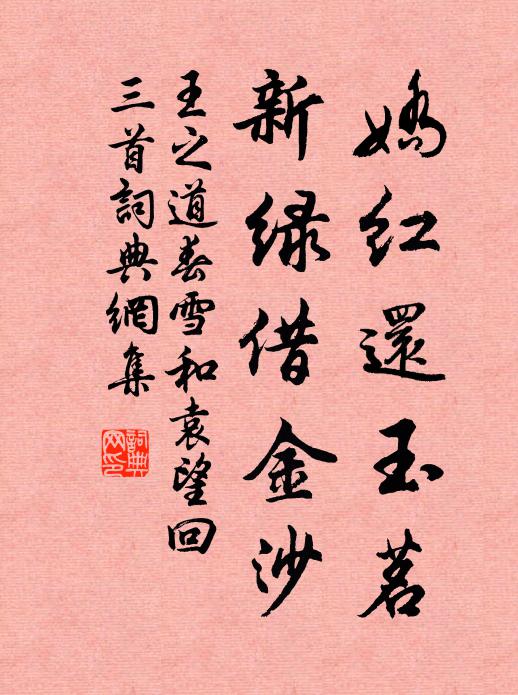 嬌紅還玉茗
新綠借金沙
王之道春雪和袁望回
三首詞典網集
詞典网印